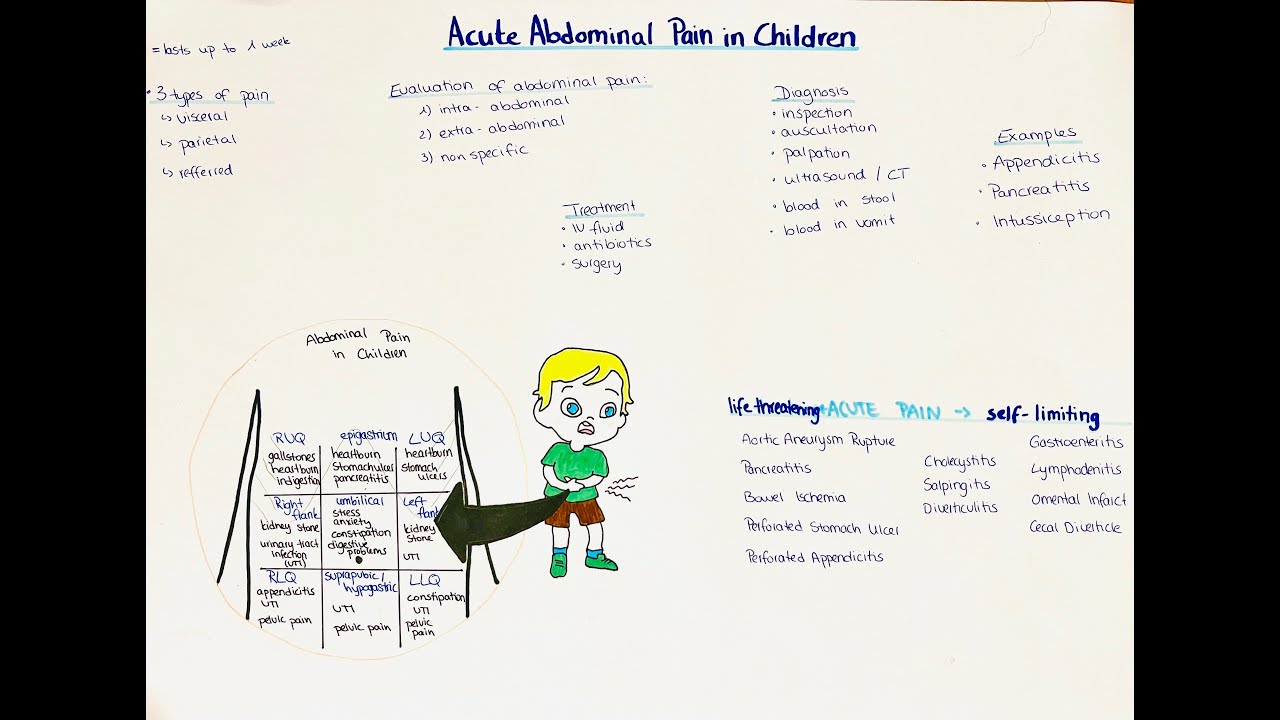 Acute Abdominal Pain in Children
= lasts up to 1 week
• 3 types of pain
↳ visceral
↳ parietal
↳ refferred
Evaluation of abdominal pain:
1) intra-abdominal
2) extra-abdominal
3) non specific
Treatment
• IV fluid
• antibiotics
• surgery
Diagnosis
• inspection
• auscultation
• palpation
• ultrasound / CT
• blood in stool
• blood in vomit
Examples
• Appendicitis
• Pancreatitis
• Intussiception
Abdominal Pain
in Children
RUQ
gallstones
heartburn
indigestion
epigastrium
heartburn
stomachulcer
pancreatitis
LUQ
heartburn
stomach
ulcers
Right
flank
kidney stone
urinary tract
infection
(UTI)
umbilical
stress
anxiety
constipation
digestive
problems
Left
flank
kidney
stone
UTI
RLQ
appendicitis
UTI
pelvic pain
suprapubic/
hypogastric
UTI
pelvic pain
LLQ
constipation
UTI
pelvic
pain
life threatening ACUTE PAIN → self-limiting
Aortic Aneurysm Rupture
Pancreatitis
Bowel Ischemia
Perforated Stomach Ulcer
Perforated Appendicitis
Cholecystitis
Salpingitis
Diverticulitis
Gastroenteritis
Lymphadenitis
Omental Infarct
Cecal Diverticle